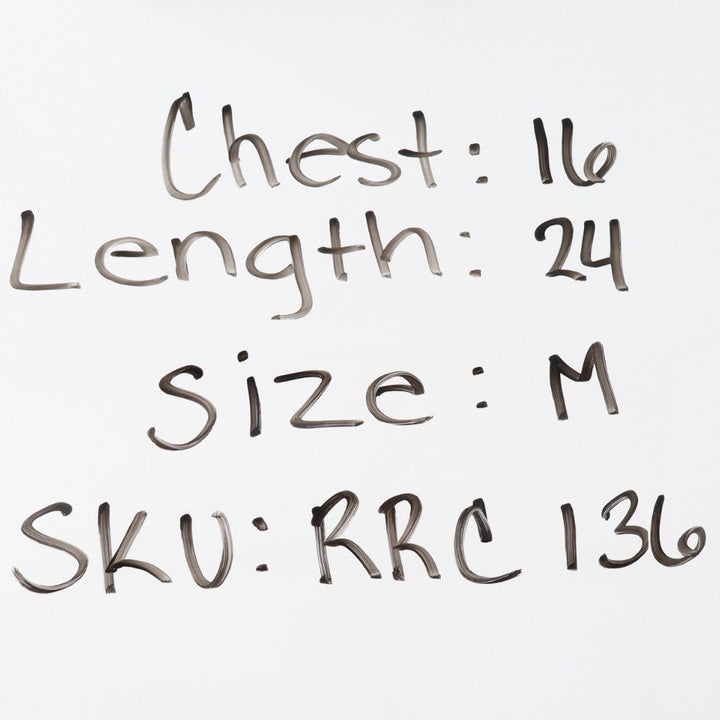 Chest: 16
Length: 24
Size: M
SKU: RRC 136